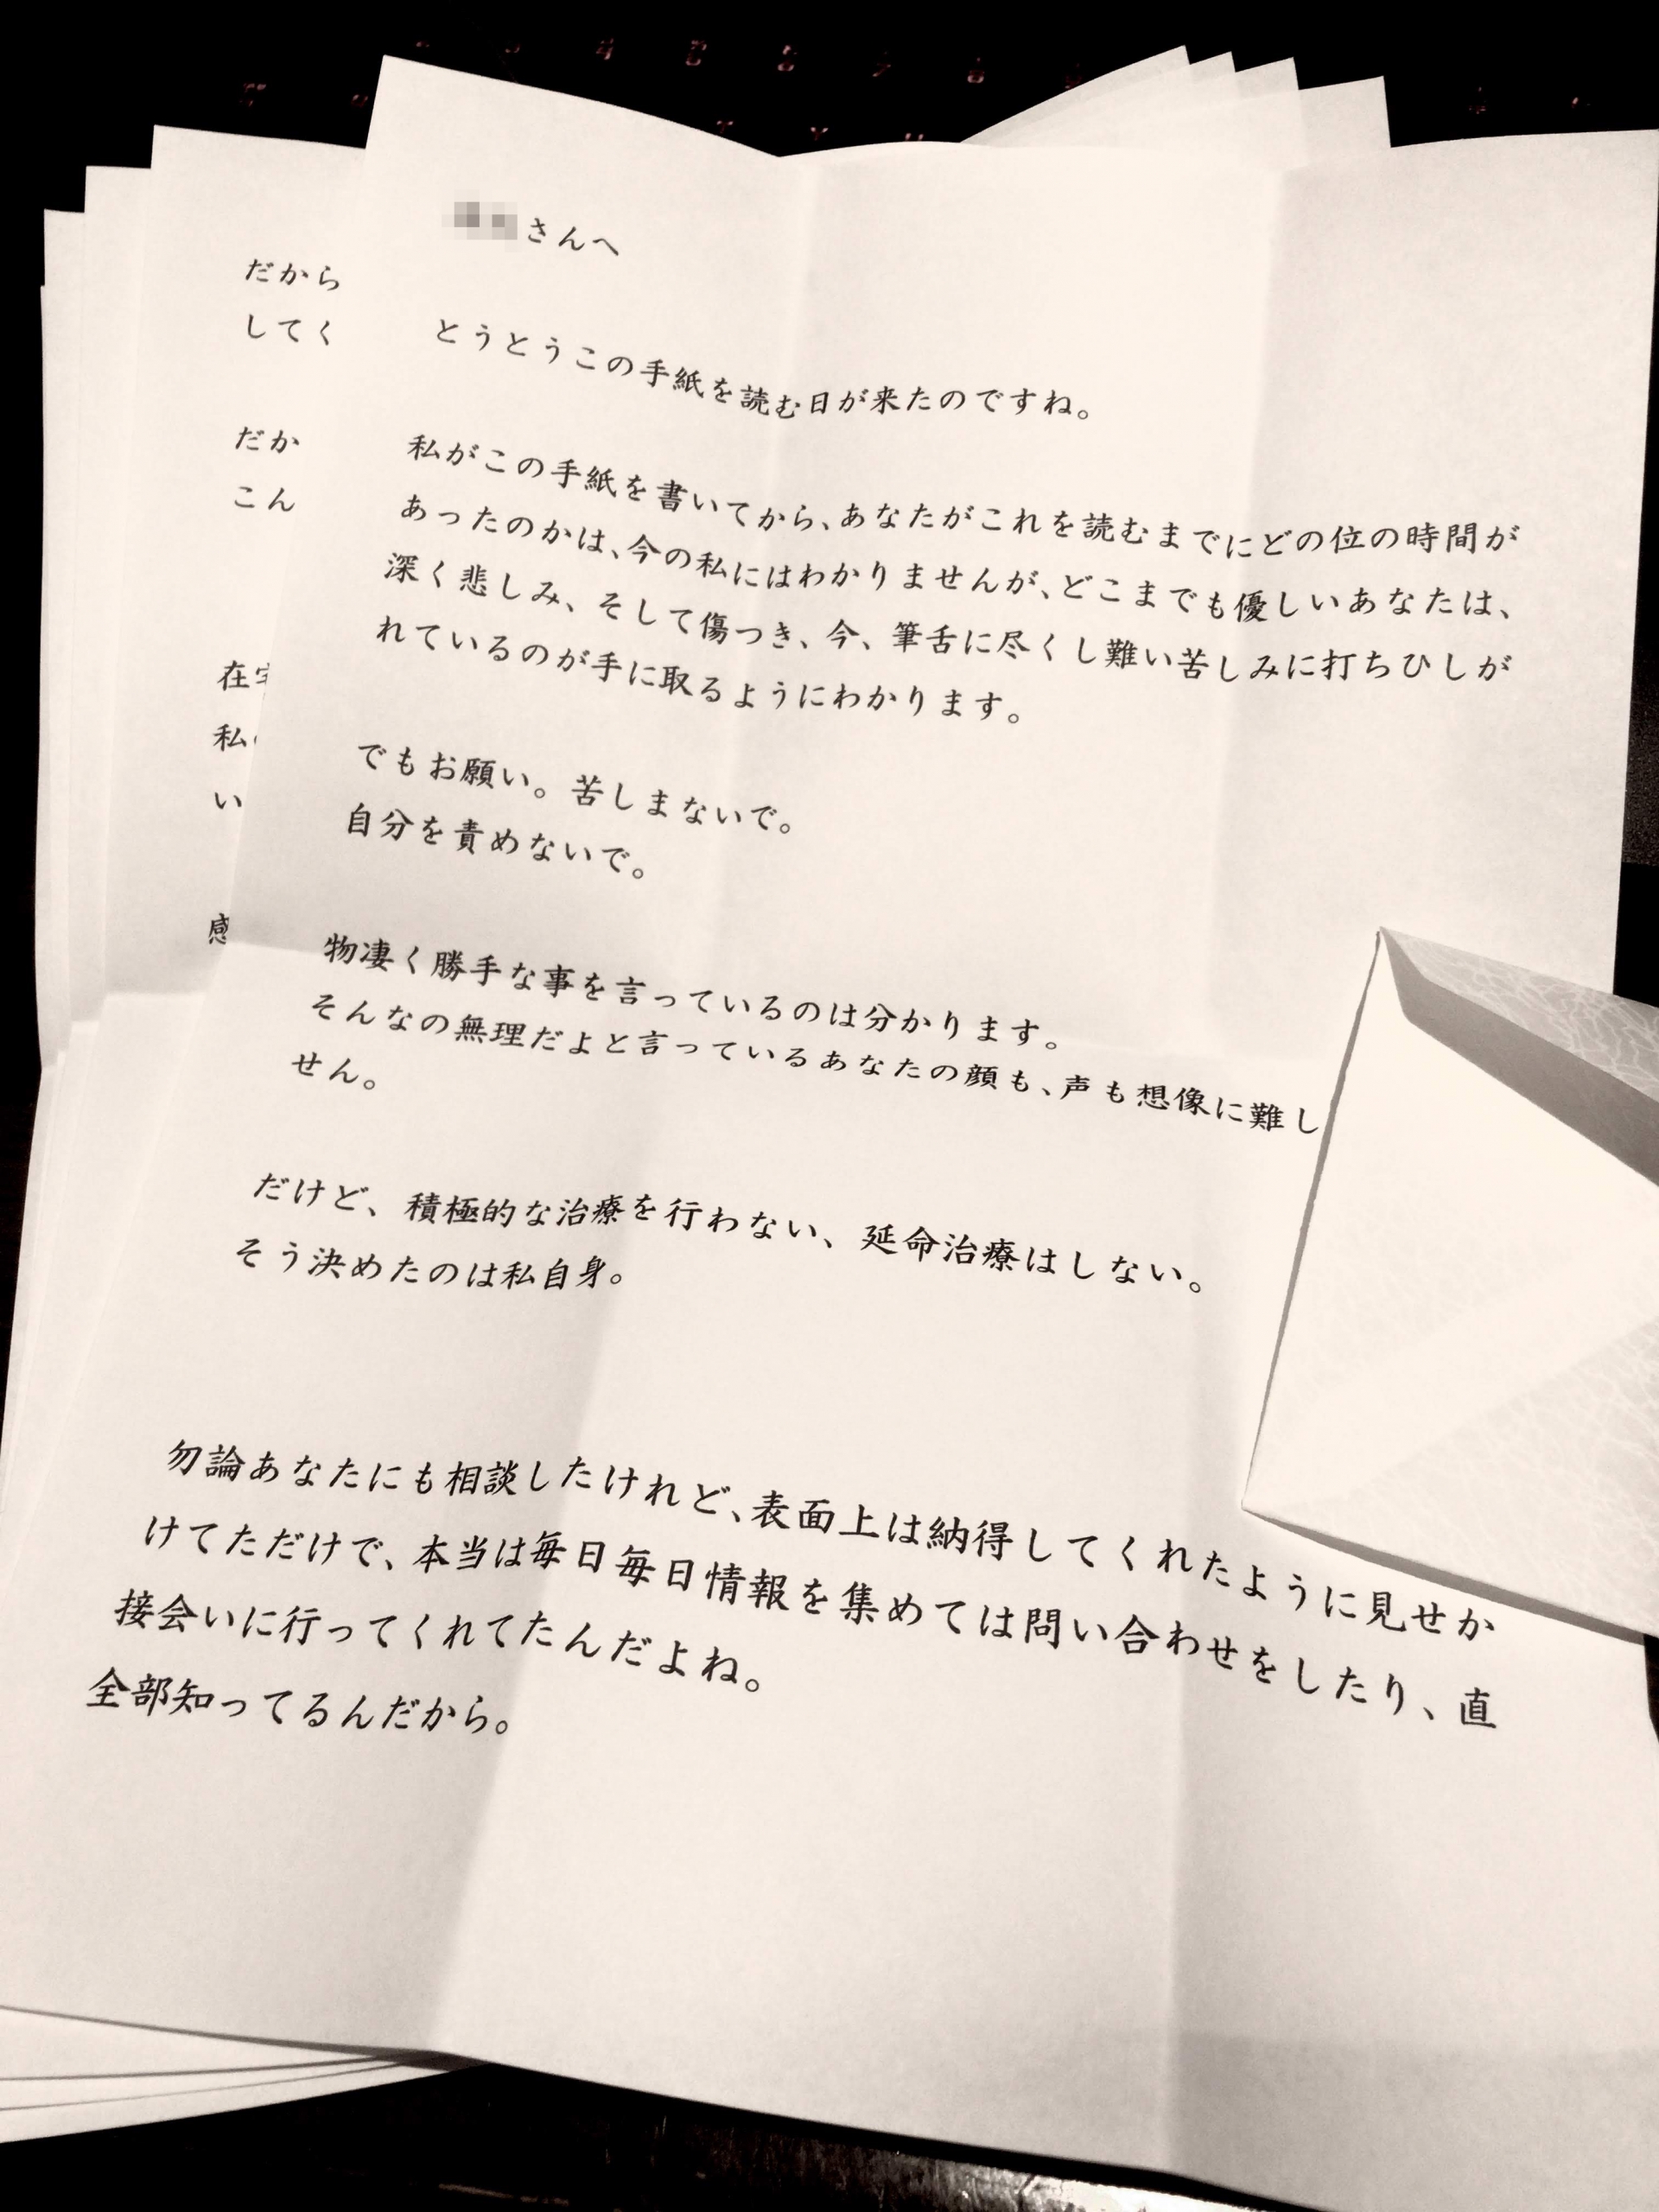 さんへ
とうとうこの手紙を読む日が来たのですね。
私がこの手紙を書いてから、あなたがこれを読むまでにどの位の時間が
あったのかは、今の私にはわかりませんが、どこまでも優しいあなたは、
深く悲しみ、そして傷つき、今、筆舌に尽くし難い苦しみに打ちひしが
れているのが手に取るようにわかります。
でもお願い。苦しまないで。
自分を責めないで。
物凄く勝手な事を言っているのは分かります。
そんなの無理だよと言っているあなたの顔も、声も想像に難し
せん。
だけど、積極的な治療を行わない、延命治療はしない。
そう決めたのは私自身。
勿論あなたにも相談したけれど、表面上は納得してくれたように見せか
けてただけで、本当は毎日毎日情報を集めては問い合わせをしたり、直
接会いに行ってくれてたんだよね。
全部知ってるんだから。
だから
してく
だか
こん
在
私
い
感